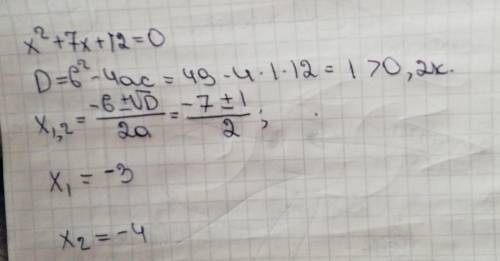 x² + 7x + 12 = 0
D = b² - 4ac = 49 - 4 · 1 · 12 = 1 > 0, 2к.
x₁,₂ = (-b ± √D)/(2a) = (-7 ± 1)/2 ;
x₁ = -3
x₂ = -4